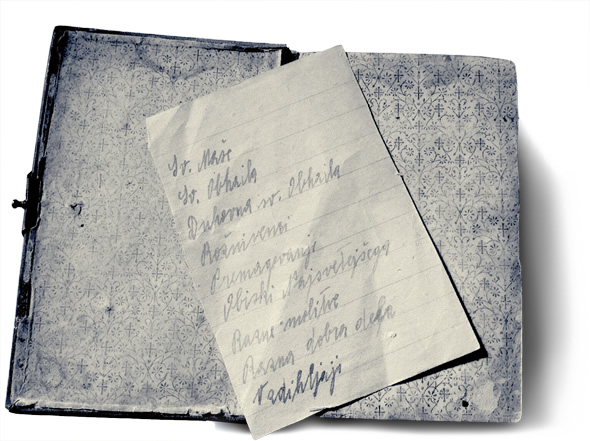 Sv. Maše
Sv. Obhaila
Duhovna sv. Obhaila
Rožnivenci
Premagovanje
Obiski Najsvetejšega
Razne molitve
Razna dobra dela
Vzdihljaji